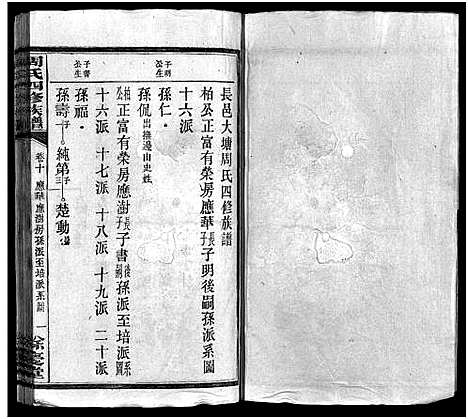 長邑大塘周氏四修族譜
柏公正富有榮房應華長子子明後嗣孫派系圖
十六派
子明公生
孫仁
孫侃出撫邊山史姓
柏公正富有榮房應澍長子子書後嗣孫派至培派系圖
十六派 十七派 十八派 十九派 二十派
子書公生
孫福
孫壽子一 純第子三 楚動
周氏四修族譜
卷十 應華應澍房孫派至培派系圖 一